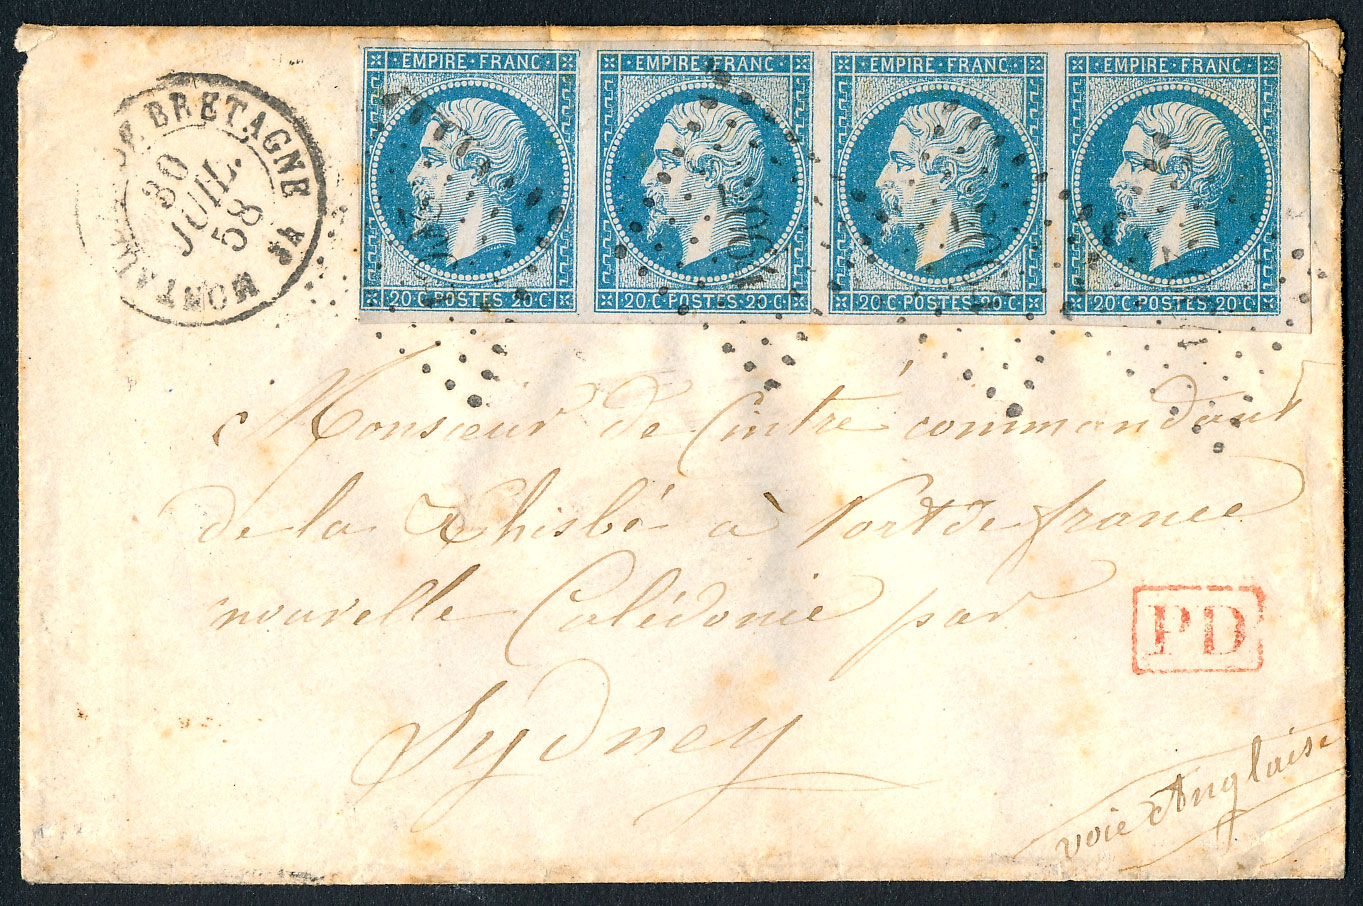 DE BRETAGNE
30
JUIL.
58
EMPIRE · FRANC · EMPIRE · FRANC · EMPIRE · FRANC · EMPIRE · FRANC ·
20·C·POSTES·20·C· 20·C·POSTES·20·C· 20·C·POSTES·20·C· 20·C·POSTES·20·C·
Monsieur de Cintré commandant
de la Thisbé à Port de france
nouvelle Calédonie par
Sydney
PD
voie Anglaise